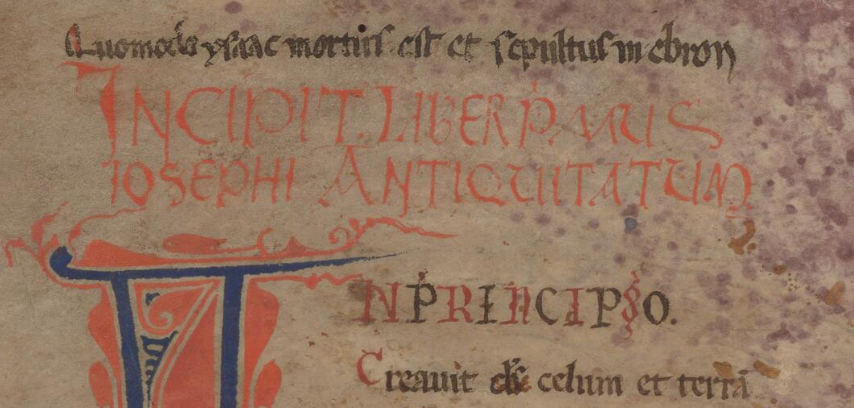 Quomodo ysaac mortuus est et sepultus in ebron
INCIPIT. LIBER PMUS
IOSEPHI ANTIQUITATUM
IN PRINCIPIO.
Creauit ds celum et terrā